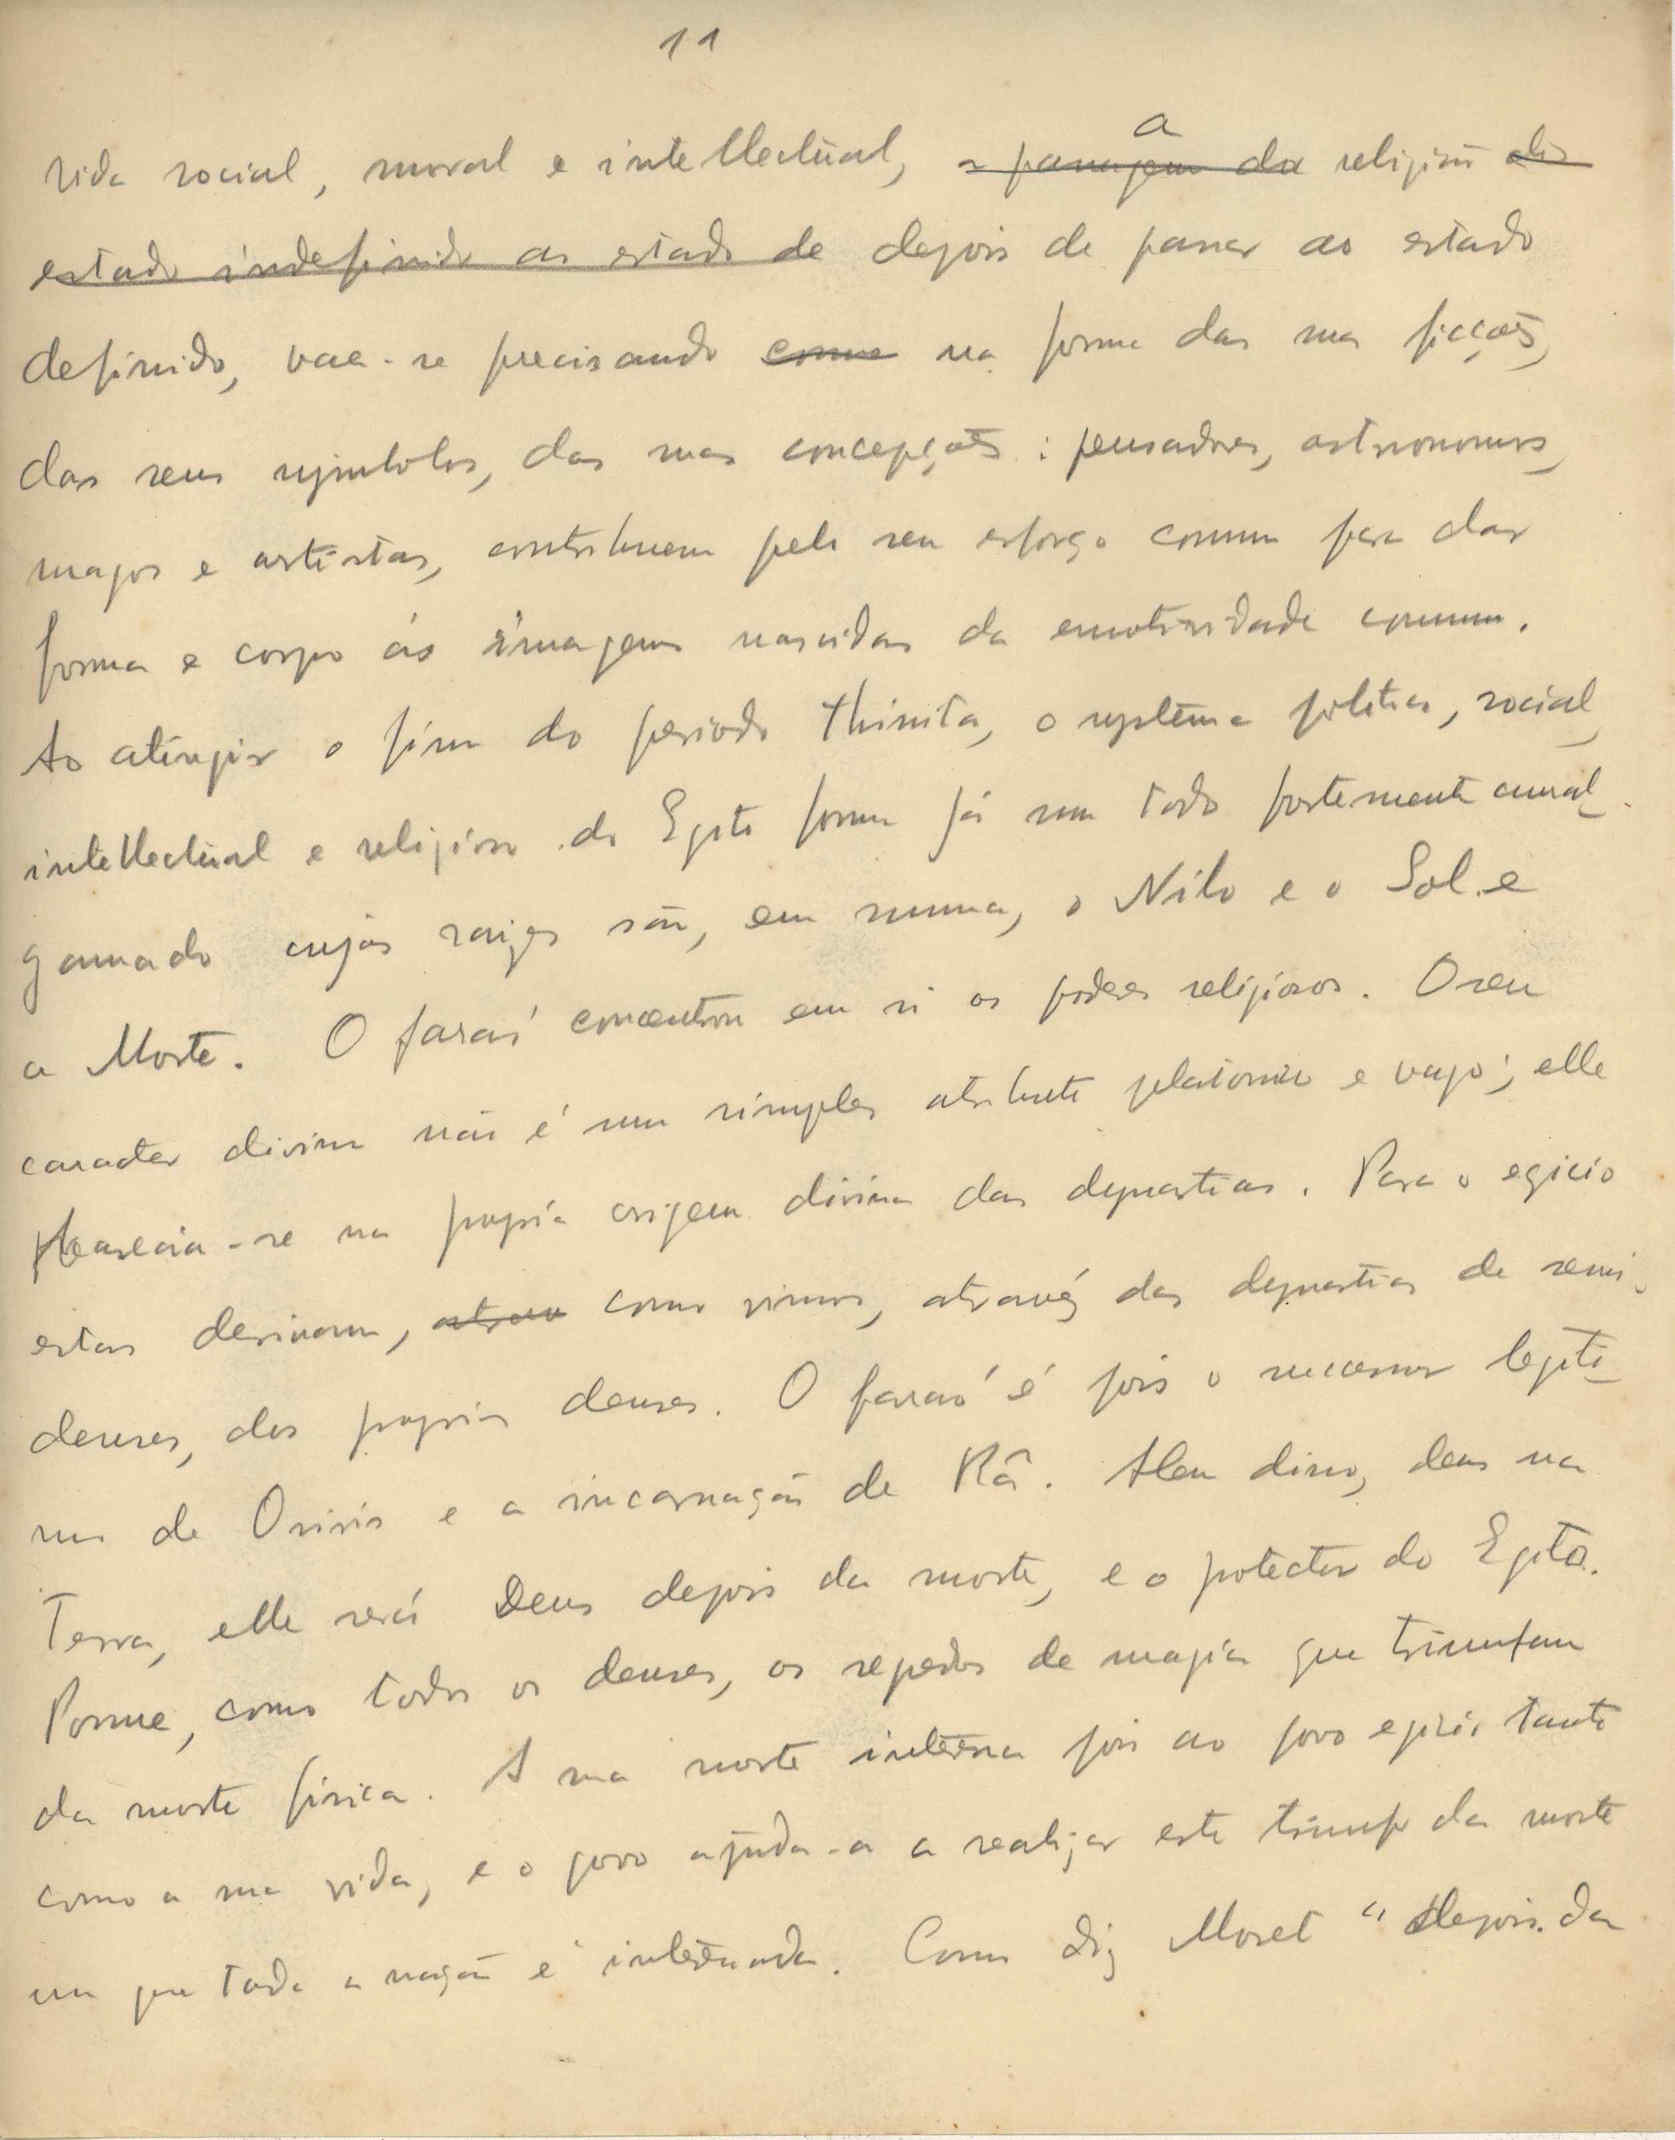 11
vida social, moral e intellectual, a passagem da a religião do
estado indefinido ao estado de depois de passar ao estado
definido, vae-se precisando como na forma das suas ficções,
dos seus symbolos, das suas concepções: pensadores, astronomos,
magos e artistas, contribuem pelo seu esforço comum para dar
forma e corpo ás imagens nascidas da emotividade comum.
Ao atingir o fim do periodo thinita, o systema politico, social,
intellectual e religioso do Egito forma já um todo fortemente amal-
gamado cujas raizes são, em summa, o Nilo e o Sol e
a Morte. O faraó concentrou em si os poderes religiosos. O seu
caracter divino não é um simples atributo platonico e vago; elle
baseia-se na propria origem divina das dynastias. Para o egicio
estas derivam, atrav como vimos, através das dynastias de semi-
deuses, dos proprios deuses. O faraó é pois o sucessor legiti-
mo de Osiris e a incarnação de Râ. Alem disso, deus na
Terra, elle será Deus depois da morte, e o protector do Egito.
Possue, como todos os deuses, os segredos de magia que triunfam
da morte fisica. A sua morte interessa pois ao povo egicio tanto
como a sua vida, e o povo ajuda-a a realizar este triunfo da morte
em que toda a nação é interessada. Como diz Moret "depois da